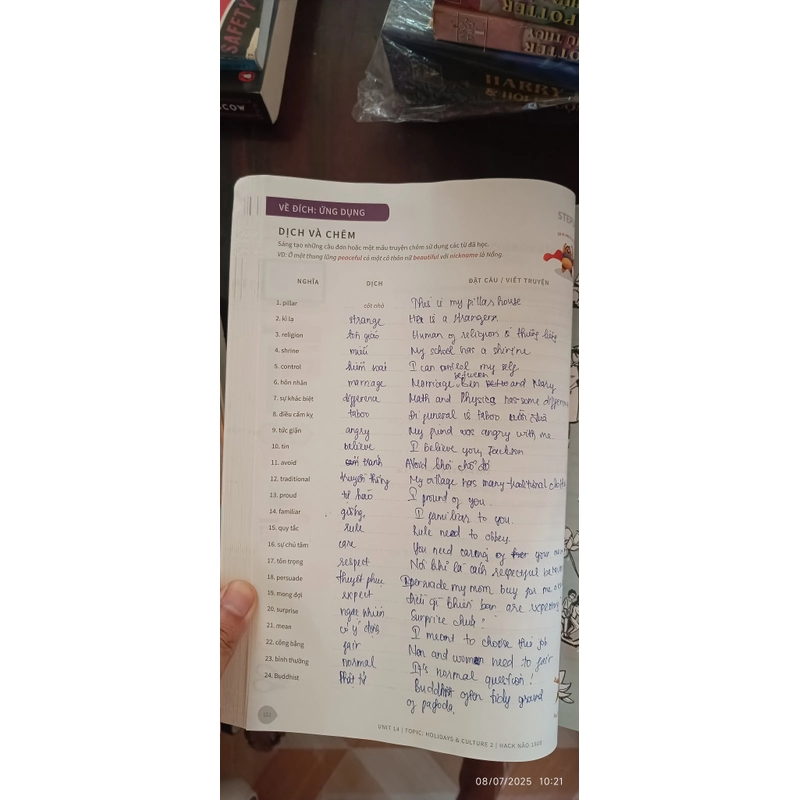 SAFETY
COW
POTTER
TTER
HARRY
VỀ ĐÍCH: ỨNG DỤNG
STEP
DỊCH VÀ CHÊM
Sáng tạo những câu đơn hoặc một mẩu truyện chêm sử dụng các từ đã học.
VD: Ở một thung lũng peaceful có một cô thôn nữ beautiful với nickname là Nắng.
NGHĨA DỊCH ĐẶT CÂU / VIẾT TRUYỆN
1. pillar cột nhà This is my pillar house
2. kì lạ strange He is a strangers
3. religion tôn giáo Human of religion
4. shrine miếu My school has a shrine
5. control kiểm soát I can control my self
6. hôn nhân marriage Marriage between Ben and Mary
7. sự khác biệt difference Math and Physics has some difference
8. điều cấm kỵ taboo In funeral is taboo
9. tức giận angry My friend was angry with me
10. tin believe I believe you, Jackson
11. avoid tránh Avoid khỏi chỗ đó
12. traditional truyền thống My village has many traditional
13. proud tự hào I pround of you.
14. familiar giống I familiar to you.
15. quy tắc rule Rule need to obbey.
16. sự chú tâm care You need caring of your
17. tôn trọng respect Nói khẽ là cách respectful
18. persuade thuyết phục I persuade my mom buy for me
19. mong đợi expect điều gì khiến bạn are
20. surprise ngạc nhiên Surprise chưa!
21. mean có ý định I meant to choose this job
22. công bằng fair Man and women need to fair
23. bình thường normal It's normal question!
24. Buddhist Phật tử Buddhist often tidy ground
of pagoda.
UNIT 14 | TOPIC: HOLIDAYS & CULTURE 2 | HACK NÃO 1500
08/07/2025 10:21